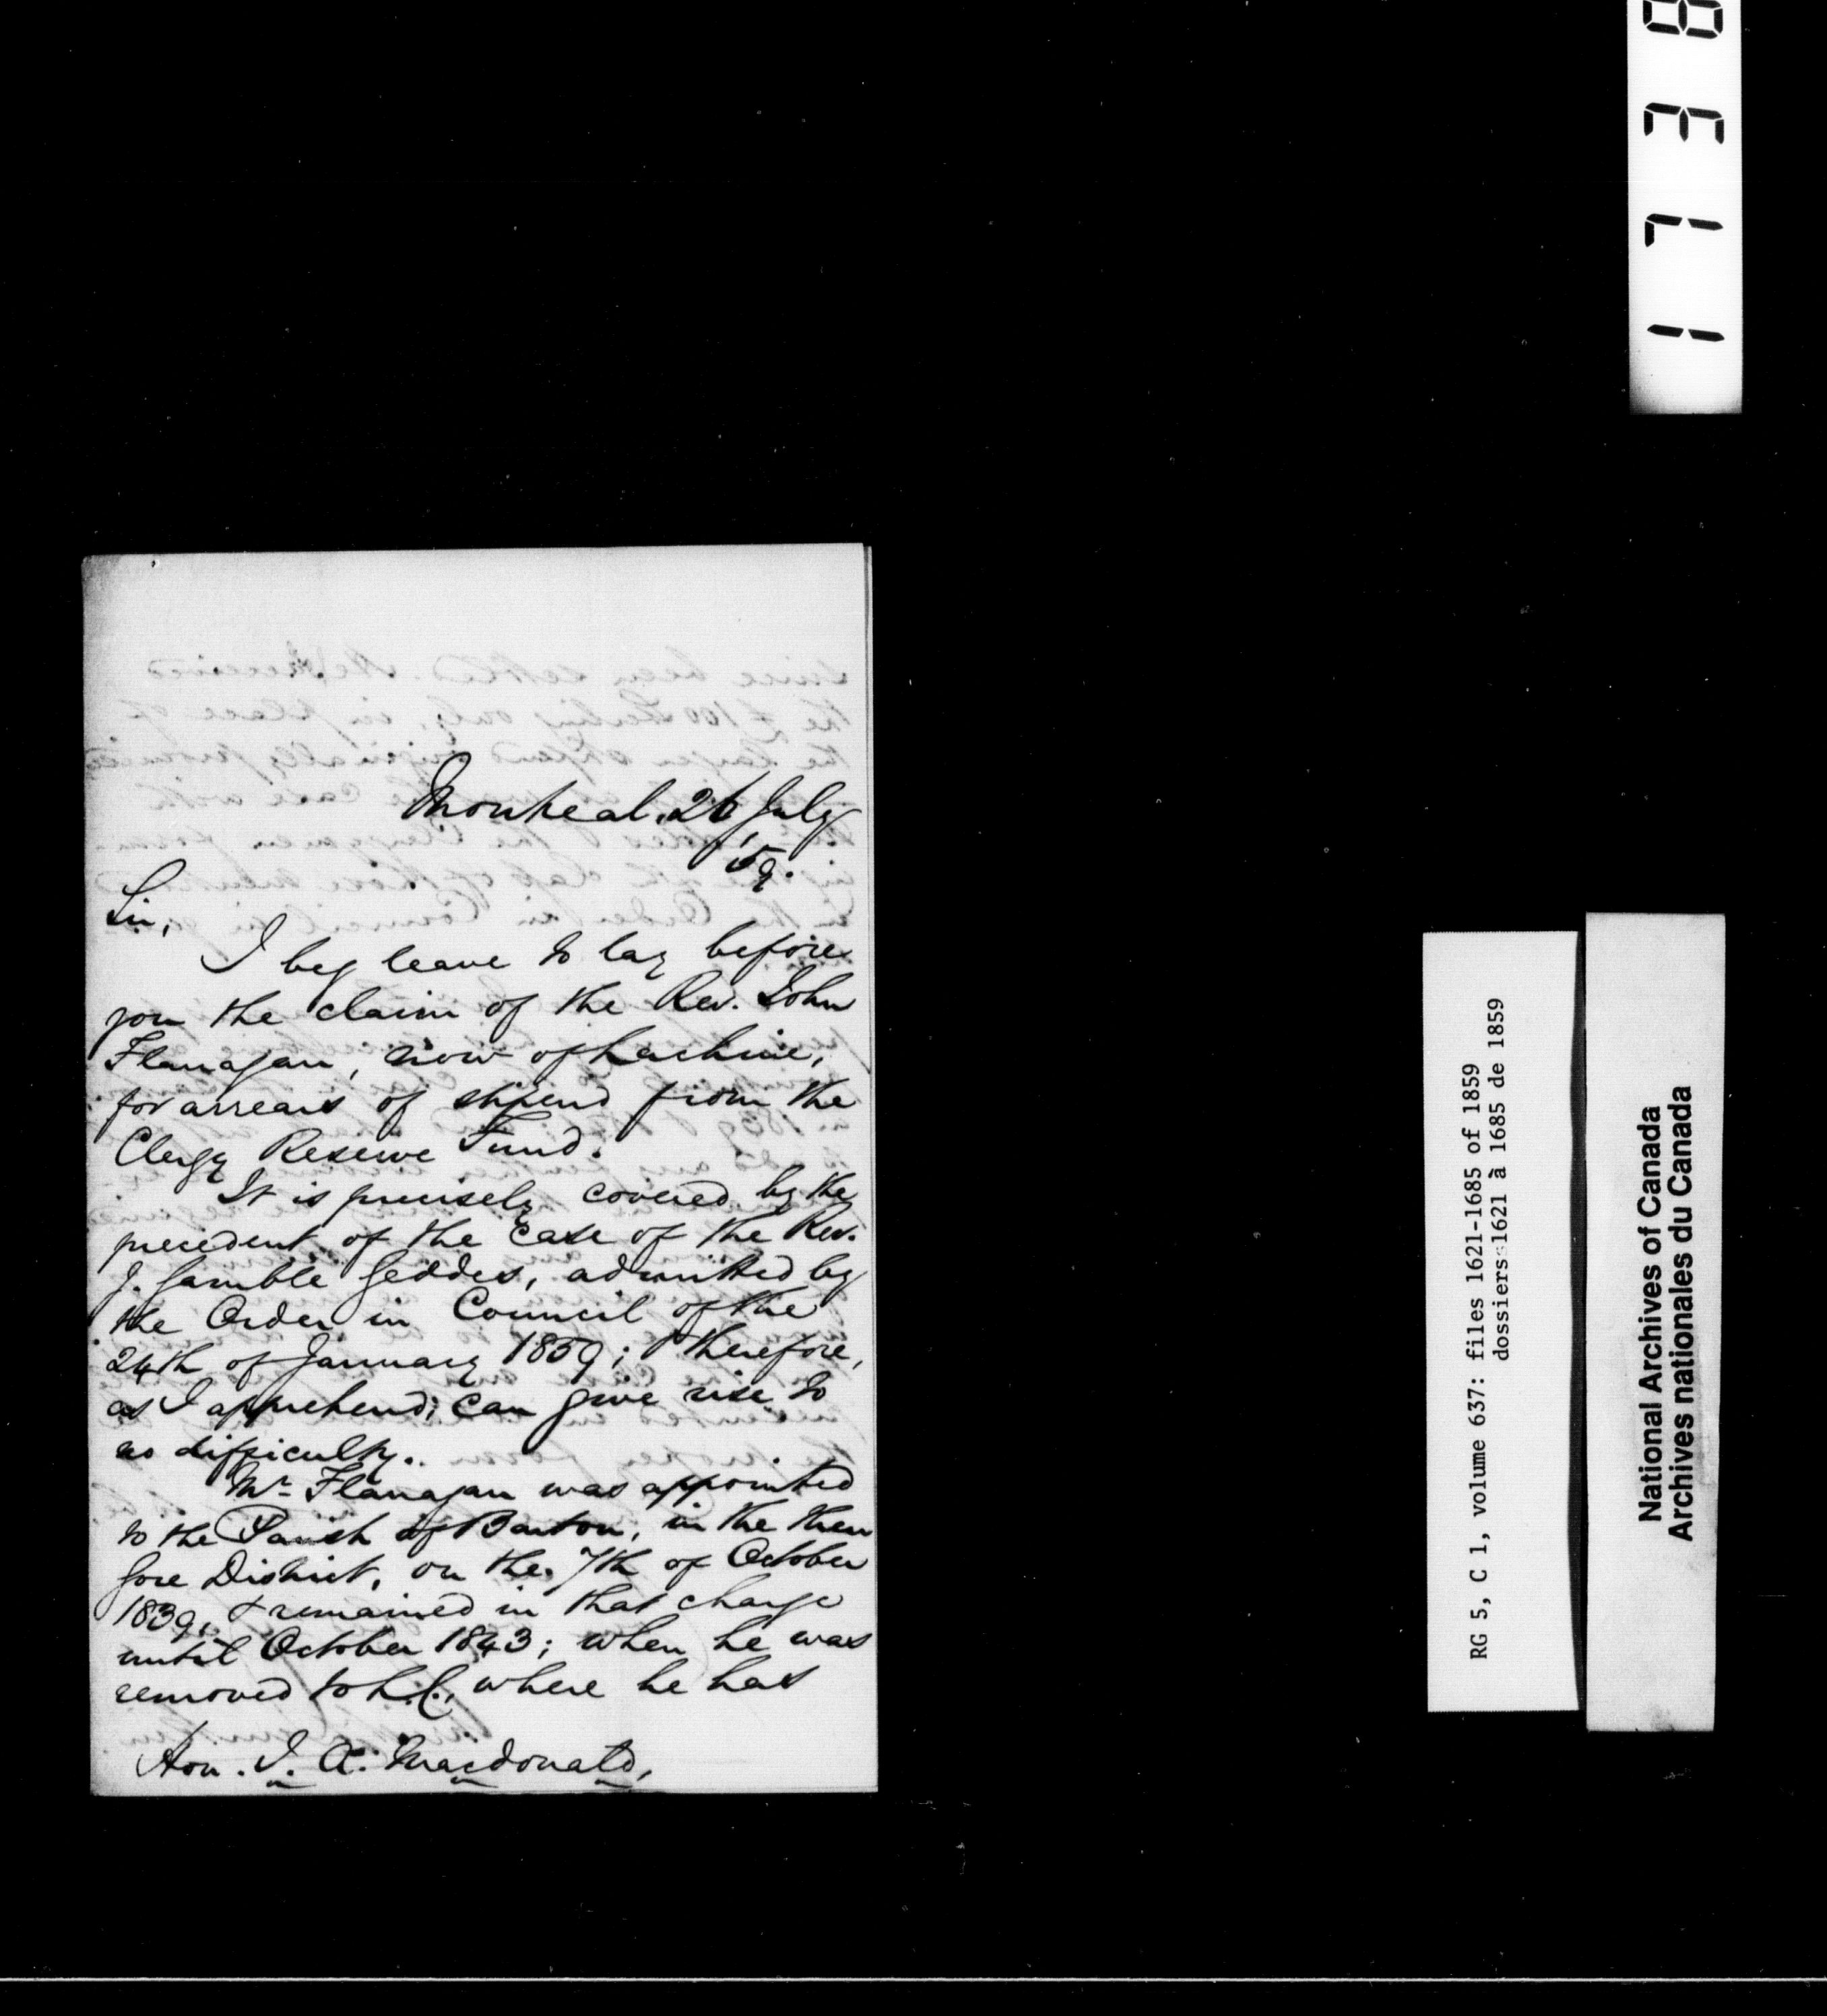 Montreal. 26 July
'59.
Sir,
I beg leave to lay before
you the claim of the Rev. John
Flanagan, now of Lachine,
for arrears of stipend from the
Clergy Reserve Fund.
It is precisely covered by the
precedent of the case of the Rev.
J. Gamble Geddes, admitted by
the Order in Council of the
24th of January 1859; & therefore,
as I apprehend, can give rise to
no difficulty.
Mr. Flanagan was appointed
to the Parish of Barton, in the then
Gore District, on the 7th of October
1839, & remained in that charge
until October 1843; when he was
removed to L.C., where he has
Hon. J. A. Macdonald,
1738
RG 5, C 1, volume 637: files 1621-1685 of 1859
dossiers 1621 à 1685 de 1859
National Archives of Canada
Archives nationales du Canada